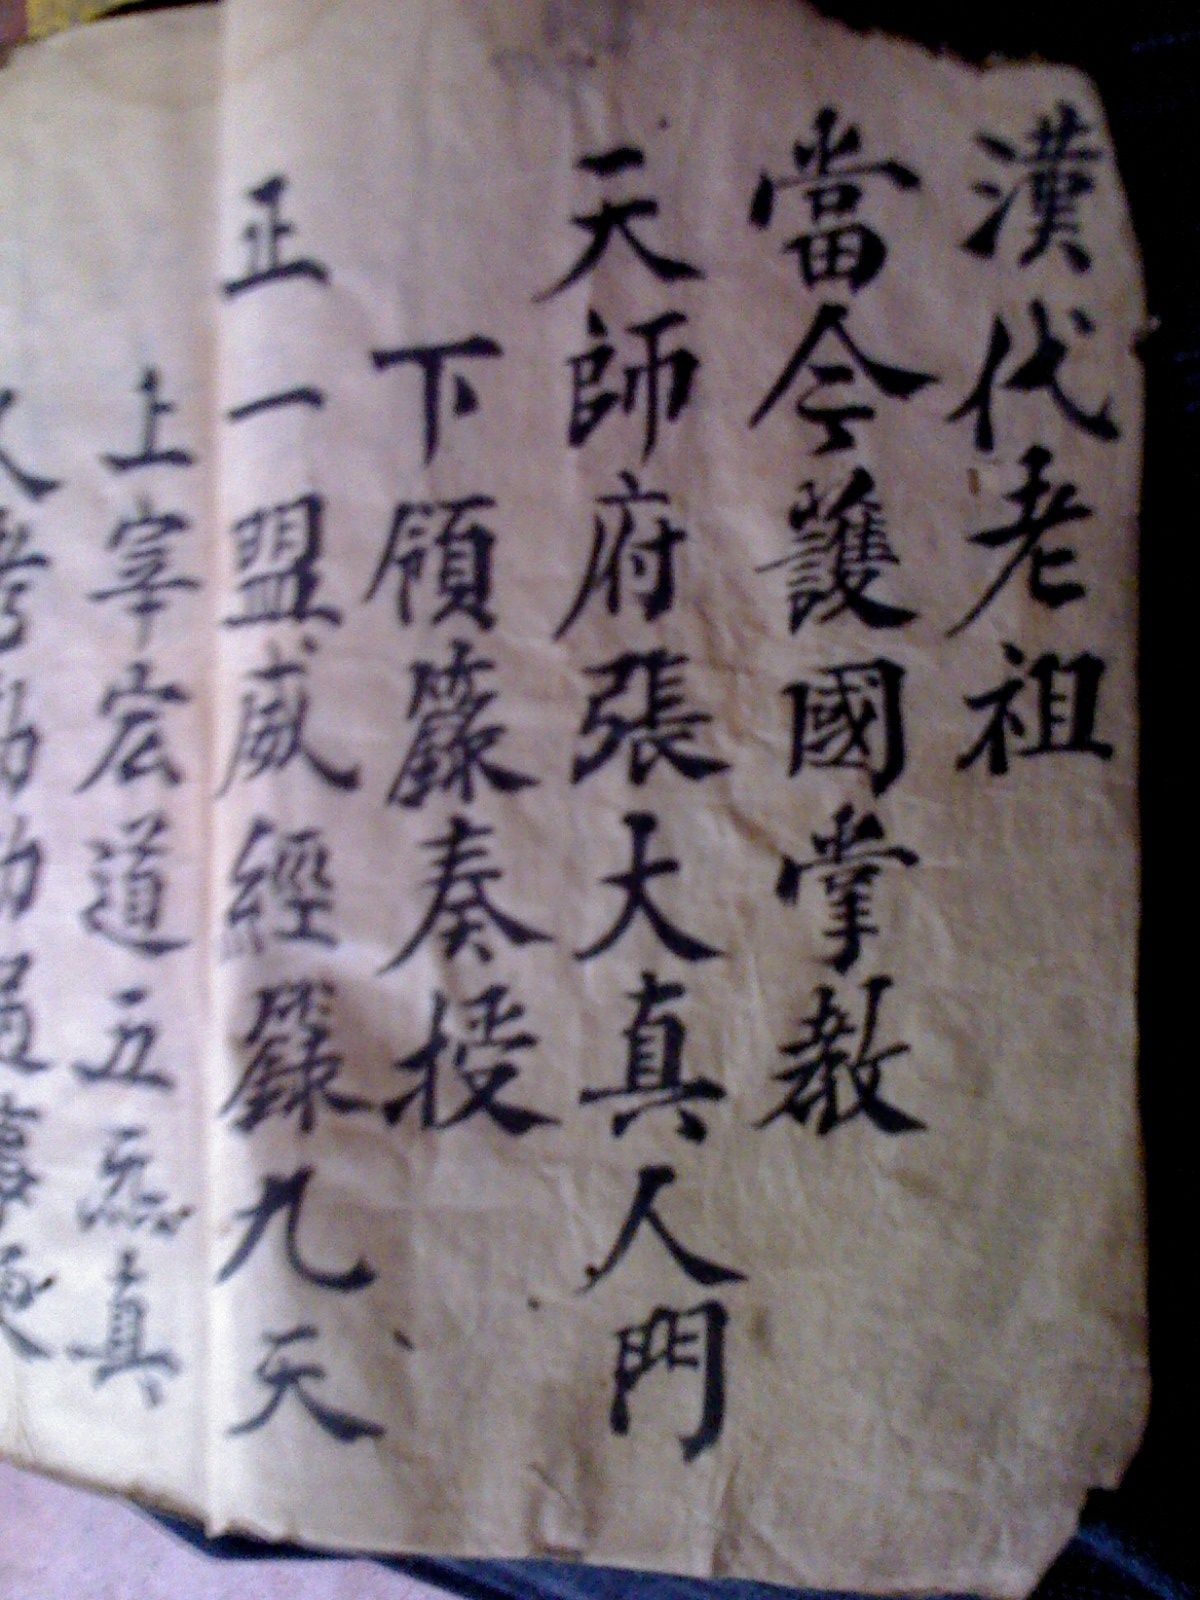 漢代老祖
當今護國掌教
天師府張大真人門
下領籙奏授
正一盟威經籙九天
上宰宏道五炁真